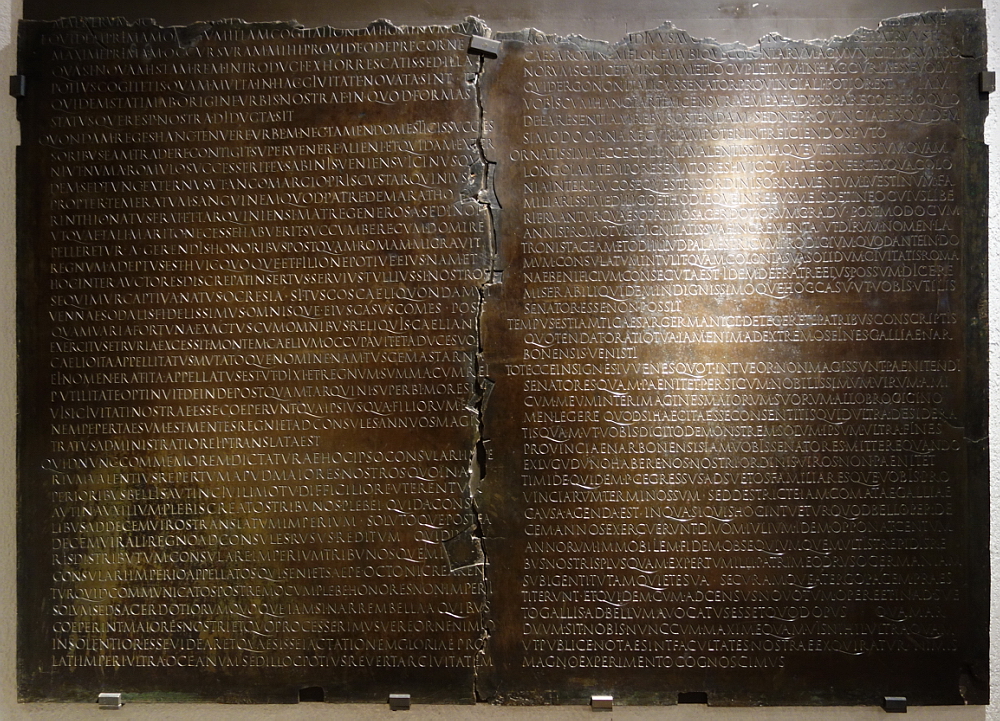 EQVIDEM PRIMAM OMNIVM ILLAM COGITATIONEM HOMINVM
MAXIME PRIMAM OCCVRSVRAM MIHI PROVIDEO DEPRECOR NE
QVASI NOVAM ISTAM REM INTRODVCI EXHORRESCATIS SED ILLA
POTIVS COGITETIS QVAM MVLTA IN HAC CIVITATE NOVATA SINT
QVIDEM STATIM AB ORIGINE VRBIS NOSTRAE IN QVOD FORMAS
STATVSQVE RES P NOSTRA DIDVCTA SIT
QVONDAM REGES HANC TENVERE VRBEM NEC TAMEN DOMESTICIS SVCCES
SORIBVS EAM TRADERE CONTIGIT SVPERVENERE ALIENI ET QVIDAM
NI VT NVMA ROMVLO SVCCESSERIT EX SABINIS VENIENS VICINVS
DEM SED TVNC EXTERNVS VT ANCO MARCIO PRISCVS TARQVINIVS
PROPTER TEMERATVM SANGVINEM QVOD PATRE DEMARATHO
RINTHIO NATVS ERAT ET TARQVINIENSI MATRE GENEROSA SED INOPI
VT QVAE TALI MARITO NECESSE HABVERIT SVCCVMBERE CVM DOMI RE
PELLERETVR A GERENDIS HONORIBVS POSTQVAM ROMAM MIGRAVIT
REGNVM ADEPTVS EST HVIC QVOQVE ET FILIO NEPOTIVE EIVS NAM ET
HOC INTER AVCTORES DISCREPAT INSERTVS SERVIVS TVLLIVS SI NOSTROS
SEQVIMVR CAPTIVA NATVS OCRESIA · SI TVSCOS CAELI QVONDAM
VENNAE SODALIS FIDELISSIMVS OMNISQVE EIVS CASVS COMES · POST
QVAM VARIA FORTVNA EXACTVS CVM OMNIBVS RELIQVIS CAELIANI
EXERCITVS ETRVRIA EXCESSIT MONTEM CAELIVM OCCVPAVIT ET A DVCE SVO
CAELIO ITA APPELLITATVS MVTATOQVE NOMINE NAM TVSCE MASTARNA
EI NOMEN ERAT ITA APPELLATVS EST VT DIXI ET REGNVM SVMMA CVM REI
P VTILITATE OPTINVIT DEINDE POSTQVAM TARQVINI SVPERBI MORES
VISI CIVITATI NOSTRAE ESSE COEPERVNT QVA IPSIVS QVA FILIORVM
NEMPE PERTAESVM EST MENTES REGNI ET AD CONSVLES ANNVOS MAGIS
TRATVS ADMINISTRATIO REI P TRANSLATA EST
QVID NVNC COMMEMOREM DICTATVRAE HOC IPSO CONSVLARI IMPE
RIVM VALENTIVS REPERTVM APVD MAIORES NOSTROS QVO IN AS
PERIORIBVS BELLIS AVT IN CIVILI MOTV DIFFICILIORE VTERENTVR
AVT IN AVXILIVM PLEBIS CREATOS TRIBVNOS PLEBEI QVID A CONSV
LIBVS AD DECEMVIROS TRANSLATVM IMPERIVM · SOLVTOQVE POSTEA
DECEMVIRALI REGNO AD CONSVLES RVSVS REDITVM
RIS DISTRIBVTVM CONSVLARE IMPERIVM TRIBVNOSQVE
CONSVLARI IMPERIO APPELLATOS QVI SENI ET SAEPE OCTONI CREAREN
TVR QVID COMMVNICATOS POSTREMO CVM PLEBE HONORES NON IMPERI
SOLVM SED SACERDOTIORVM QVOQVE IAM SI NARREM BELLA A QVIBVS
COEPERINT MAIORES NOSTRI ET QVO PROCESSERIMVS VEREOR NE NIMIO
INSOLENTIOR ESSE VIDEAR ET QVAESISSE IACTATIONEM GLORIAE PRO
LATI IMPERI VLTRA OCEANVM SED ILLOC POTIVS REVERTAR CIVITATEM
NORVM SCILICET VIRORVM ET LOCVPLETIVM IN HAC CVRIA ESSE
QVID ERGO NON ITALICVS SENATOR PROVINCIALI
VOBIS CVM HANC PARTEM CENSVRAE MEAE ADPROBARE
DE EA RE SENTIAM REBVS OSTENDAM SED NE PROVINCIALES QVIDEM
SI MODO ORNARE CVRIAM POTERINT REICIENDOS PVTO
ORNATISSIMA ECCE COLONIA VALENTISSIMAQVE VIENNENSIVM QVAM
LONGO IAM TEMPORE SENATORES HVIC CVRIAE CONFERT EX QVA COLO
NIA INTER PAVCOS EQVESTRIS ORDINIS ORNAMENTVM L VESTINVM FA
MILIARISSIME DILIGO ET HODIEQVE IN REBVS MEIS DETINEO CVIVS LIBE
RI FRVANTVR QVAESO PRIMO SACERDOTIORVM GRADV POST MODO CVM
ANNIS PROMOTVRI DIGNITATIS SVAE INCREMENTA VT DIRVM NOMEN LA
TRONIS TACEAM ET ODI ILLVD PALAESTRICVM PRODIGIVM QVOD ANTE IN DO
MVM CONSVLATVM INTVLIT QVAM COLONIA SVA SOLIDVM CIVITATIS ROMA
NAE BENIFICIVM CONSECVTA EST IDEM DE FRATRE EIVS POSSVM DICERE
MISERABILI QVIDEM INDIGNISSIMOQVE HOC CASV VT VOBIS VTILIS
SENATOR ESSE NON POSSIT
TEMPVS EST IAM TI CAESAR GERMANICE DETEGERE TE PATRIBVS CONSCRIPTIS
QVO TENDAT ORATIO TVA IAM ENIM AD EXTREMOS FINES GALLIAE NAR
BONENSIS VENISTI
TOT ECCE INSIGNES IVVENES QVOT INTVEOR NON MAGIS SVNT PAENITENDI
SENATORES QVAM PAENITET PERSICVM NOBILISSIMVM VIRVM AMI
CVM MEVM INTER IMAGINES MAIORVM SVORVM ALLOBROGICI NO
MEN LEGERE QVOD SI HAEC ITA ESSE CONSENTITIS QVID VLTRA DESIDERA
TIS QVAM VT VOBIS DIGITO DEMONSTREM SOLVM IPSVM VLTRA FINES
PROVINCIAE NARBONENSIS IAM VOBIS SENATORES MITTERE QVANDO
EX LVGVDVNO HABERE NOS NOSTRI ORDINIS VIROS NON PAENITET
TIMIDE QVIDEM P C EGRESSVS ADSVETOS FAMILIARESQVE VOBIS PRO
VINCIARVM TERMINOS SVM · SED DESTRICTE IAM COMATAE GALLIAE
CAVSA AGENDA EST IN QVA SI QVIS HOC INTVETVR QVOD BELLO PER DE
CEM ANNOS EXERCVERVNT DIVOM IVLIVM IDEM OPPONAT CENTVM
ANNORVM IMMOBILEM FIDEM OBSEQVIVMQVE MVLTIS TREPIDIS RE
BVS NOSTRIS PLVS QVAM EXPERTVM ILLI PATRI MEO DRVSO GERMANIAM
SVBIGENTI TVTAM QVIETE SVA SECVRAMQVE A TERGO PACEM PRAES
TITERVNT ET QVIDEM CVM AD CENSVS NOVO TVM OPERE ET INADSVE
TO GALLIS AD BELLVM AVOCATVS ESSET QVOD OPVS QVAM AR
DVVM SIT NOBIS NVNC CVM MAXIME QVAMVIS NIHIL VLTRA QVAM
VT PVBLICE NOTAE SINT FACVLTATES NOSTRAE EXQVIRATVR NIMIS
MAGNO EXPERIMENTO COGNOSCIMVS